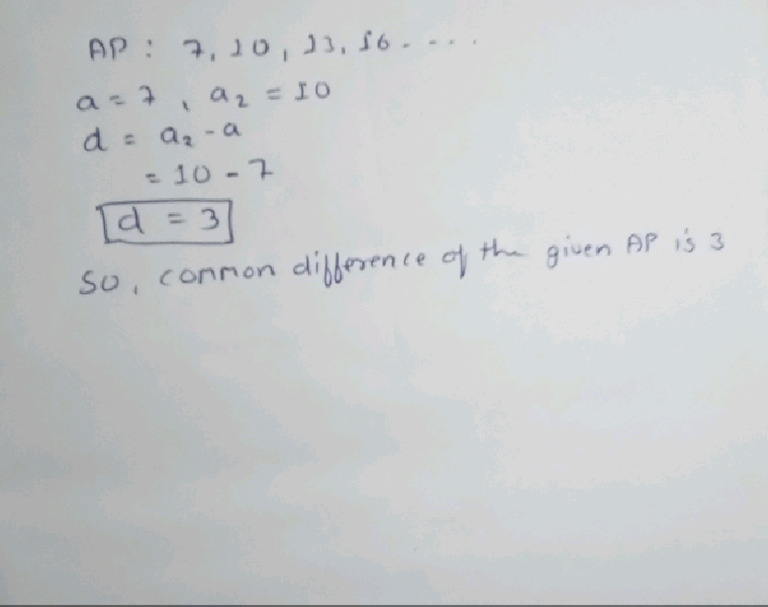 AP : 7, 10, 13, 16 - - - -
a = 7 , a₂ = 10
d = a₂ - a
= 10 - 7
d = 3
So, common difference of the given AP is 3